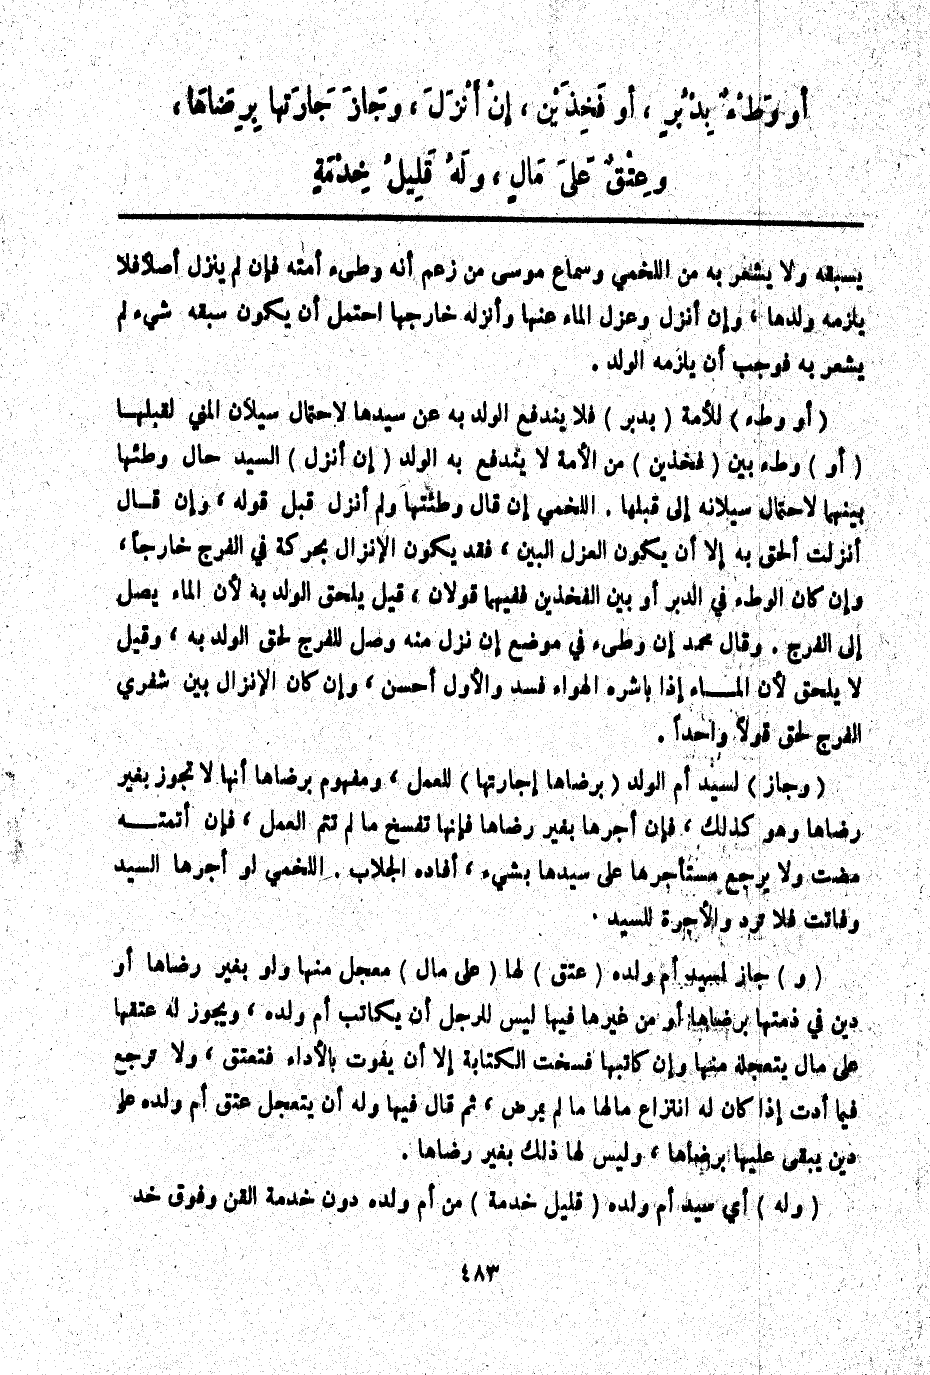 أو وَطْءٌ بِدُبُرٍ ، أو فَخِذَيْنِ ، إنْ أَنْزَلَ ، وجَازَ جَارَتها بِرِضَاهَا ،
وعِتْقٌ عَلَى مَالٍ ، ولَهُ قَلِيلُ خِدْمَةٍ
يسبقه ولا يشعر به من اللخمي وسماع موسى من زعم أنه وطىء أمته فإن لم ينزل أصلاً فلا
يلزمه ولدها ، وإن أنزل وعزل الماء عنها وأنزله خارجها احتمل أن يكون سبقه شيء لم
يشعر به فوجب أن يلزمه الولد .
( أو وطء ) للأمة ( بدبر ) فلا يندفع الولد به عن سيدها لاحتمال سيلان المني لقبلهـا
( أو ) وطء بين ( فخذين ) من الأمة لا يندفع به الولد ( إن أنزل ) السيد حال وطئها
بينهما لاحتمال سيلانه إلى قبلها . اللخمي إن قال وطئتها ولم أنزل قبل قوله ، وإن قـال
أنزلت ألحق به إلا أن يكون العزل البين ، فقد يكون الإنزال بحركة في الفرج خارجاً ،
وإن كان الوطء في الدبر أو بين الفخذين ففيهما قولان ، قيل يلحق الولد به لأن الماء يصل
إلى الفرج . وقال محمد إن وطىء في موضع إن نزل منه وصل للفرج لحق الولد به ، وقيل
لا يلحق لأن المـــاء إذا باشره الهواء فسد والأول أحسن ، وإن كان الإنزال بين شفري
الفرج لحق قولاً واحداً .
( وجاز ) لسيد أم الولد ( برضاها إجارتها ) للعمل ، ومفهوم برضاها أنها لا تجوز بغير
رضاها وهو كذلك ، فإن أجرها بغير رضاها فإنها تفسخ ما لم تتم العمل ، فإن أتمتـــه
مضت ولا يرجع مستأجرها على سيدها بشيء ، أفاده الجلاب . اللخمي لو أجرها السيد
وفاتت فلا ترد والأجرة للسيد .
( و ) جاز لسيد أم ولده ( عتق ) لها ( على مال ) معجل منها ولو بغير رضاها أو
دين في ذمتها برضاها أو من غيرها فيها ليس للرجل أن يكاتب أم ولده ، ويجوز له عتقها
على مال يتعجله منها وإن كاتبها فسخت الكتابة إلا أن يفوت بالأداء فتعتق ، ولا ترجع
فيما أدت إذا كان له انتزاع مالها ما لم يمرض ، ثم قال فيها وله أن يتعجل عتق أم ولده على
دين يبقى عليها برضاها ، وليس لها ذلك بغير رضاها .
( وله ) أي سيد أم ولده ( قليل خدمة ) من أم ولده دون خدمة القن وفوق خد
٤٨٣